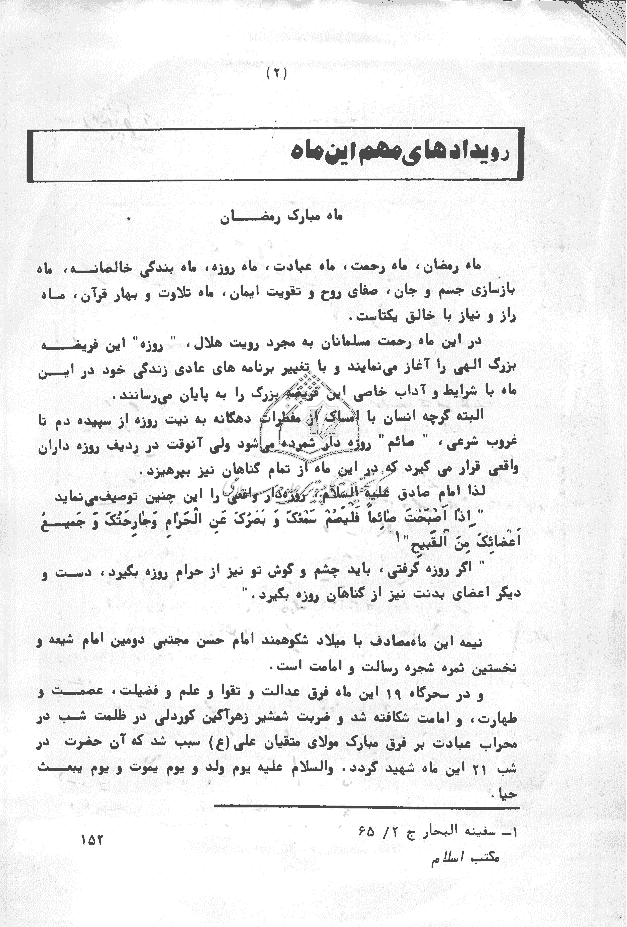 (۲)
رویدادهای مهم این ماه
ماه مبارک رمضـــان
ماه رمضان، ماه رحمت، ماه عبادت، ماه روزه، ماه بندگی خالصانـــه، ماه
بازسازی جسم و جان، صفای روح و تقویت ایمان، ماه تلاوت و بهار قرآن، مـاه
راز و نیاز با خالق یکتاست.
در این ماه رحمت مسلمانان به مجرد رویت هلال، " روزه" این فریضــه
بزرگ الهی را آغاز می‌نمایند و با تغییر برنامه های عادی زندگی خود در ایـــن
ماه با شرایط و آداب خاصی این فریضه بزرگ را به پایان می‌رسانند.
البته گرچه انسان با امساک از مفطرات دهگانه به نیت روزه از سپیده دم تا
غروب شرعی، " صائم" روزه دار شمرده می‌شود ولی آنوقت در ردیف روزه داران
واقعی قرار می گیرد که در این ماه از تمام گناهان نیز بپرهیزد.
لذا امام صادق علیه السلام، روزه‌دار واقعی را این چنین توصیف‌می‌نماید
"اِذا اَصْبَحْتَ صائِماً فَلْیَصُمْ سَمْعُکَ وَ بَصَرُکَ عَنِ الْحَرامِ وَجارِحَتُکَ وَ جَمیــعُ
اَعْضائِکَ مِنَ الْقَبیحِ"۱
" اگر روزه گرفتی، باید چشم و گوش تو نیز از حرام روزه بگیرد، دست و
دیگر اعضای بدنت نیز از گناهان روزه بگیرد."
نیمه این ماه‌مصادف با میلاد شکوهمند امام حسن مجتبی دومین امام شیعه و
نخستین ثمره شجره رسالت و امامت است.
و در سحرگاه ۱۹ این ماه فرق عدالت و تقوا و علم و فضیلت، عصمـت و
طهارت، و امامت شکافته شد و ضربت شمشیر زهرآگین کوردلی در ظلمت شب در
محراب عبادت بر فرق مبارک مولای متقیان علی(ع) سبب شد که آن حضرت در
شب ۲۱ این ماه شهید گردد. والسلام علیه یوم ولد و یوم یموت و یوم یبعـــث
حیا.
۱ـ سفینه البحار ج ۲/ ۶۵
مکتب اسلام
۱۵۲